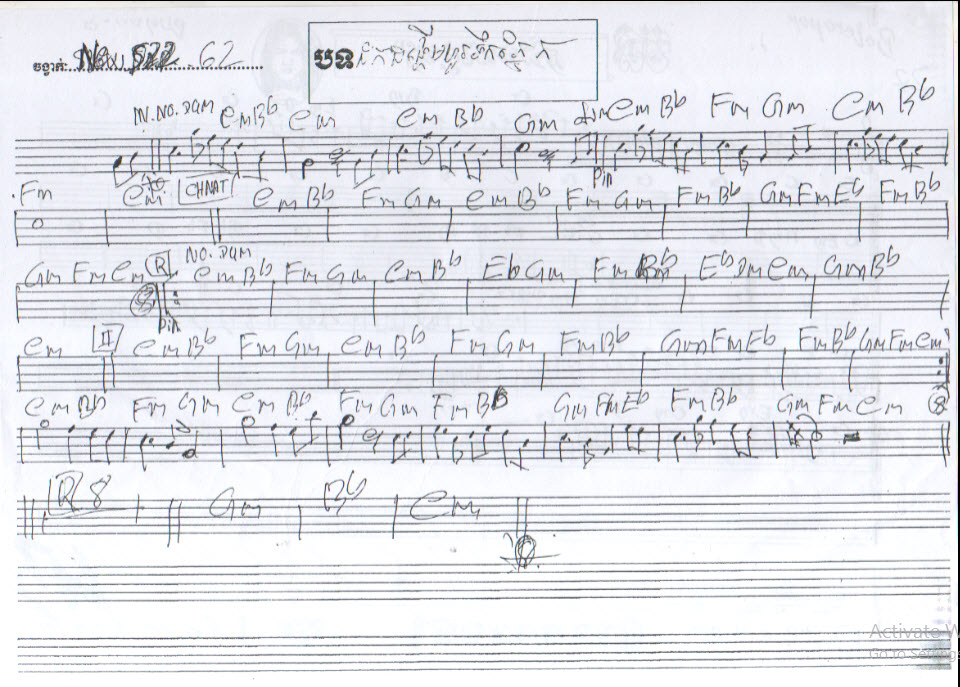 បន្ទាត់: New 522 62
បទ
IN. NO. DAM CmBb Cm Cm Bb Gm CmBb Fm Gm Cm Bb
Pin
Fm Cm CHNAT CmBb Fm Gm Cm Bb Fm Gm FmBb GmFmEb FmBb
Gm FmCm R NO. DAM CmBb Fm Gm Cm Bb Eb Gm Fm Bb Eb DmCm GmBb
8 Pin
Cm II Cm Bb Fm Gm Cm Bb Fm Gm Fm Bb GmFmEb FmBb GmFmCm
CmBb Fm Gm Cm Bb Fm Gm FmBb Gm FmEb FmBb Gm Fm Cm
R 8 Gm Bb Cm
Activate W
Go to Settings